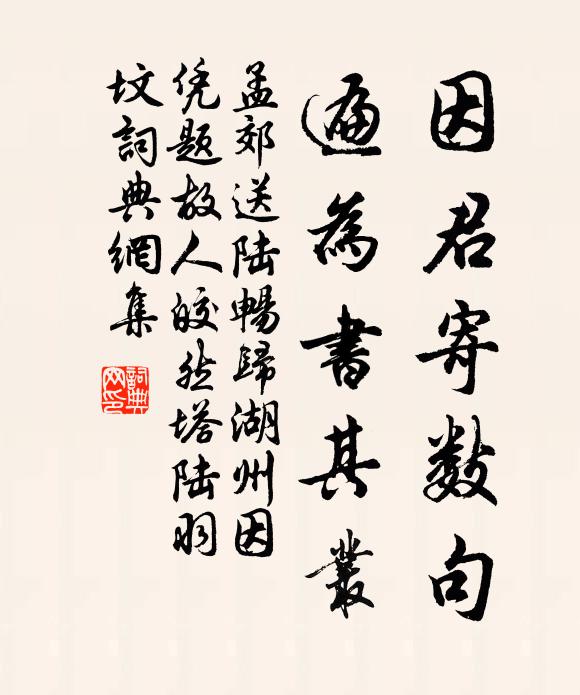 因君寄数句
遍為書其叢
孟郊送陸暢歸湖州因
凭題故人皎然塔陸羽
坟詞典網集
詞典
网印